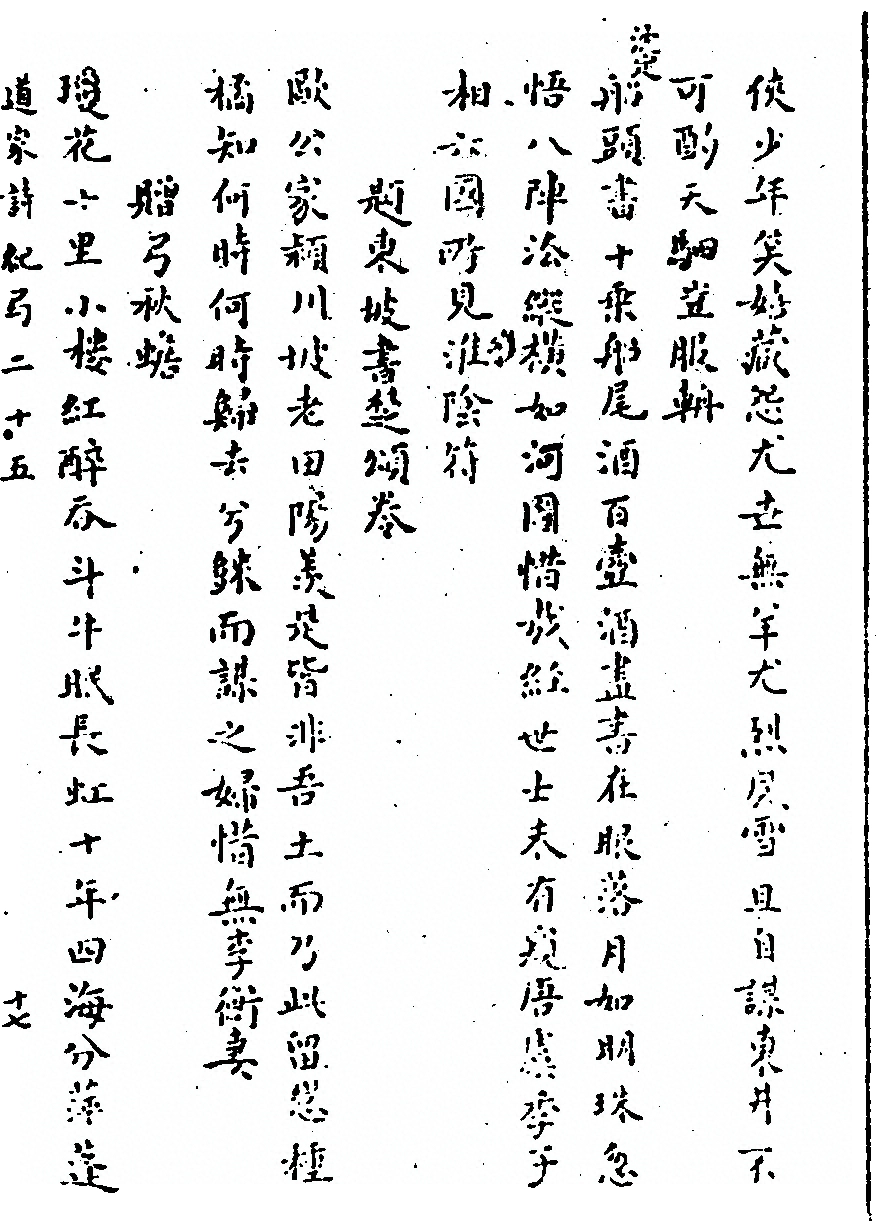 俠少年笑好藏怨尤盍無羊尤烈風雪且自謀東井不
可酌天駟豈服輈
船頭書十乘船尾酒百壺酒盡書在眼落月如明珠忽
悟八陣法縱橫如河圖惜哉經世士未有窺唐虞季子
相六國所見淮陰符
題東坡書楚頌卷
歐公家潁川坡老田陽羨是皆非吾土而乃此留惓種
橘知何時何時歸去兮歸而謀之婦惜無李衡妻
贈弓秋蟾
瓊花十里小樓紅醉吞斗牛眠長虹十年四海分萍蓬
道家詩紀弓二十五
十七